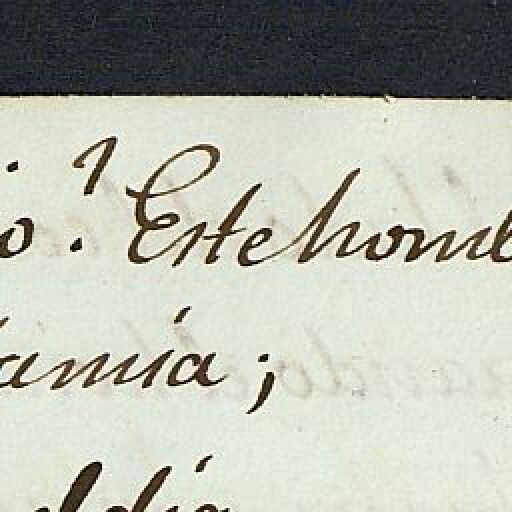 io? Este homb
lamia;
el dia